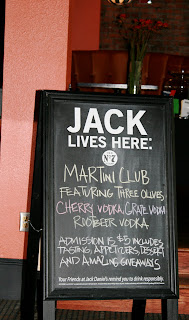 JACK
LIVES HERE:
No 7
MARTINI CLUB
FEATURING THREE OLIVES
CHERRY VODKA, GRAPE VODKA
ROOTBEER VODKA
ADMISSION IS $5 INCLUDES
TASTING, APPETIZERS, DESSERT
AND AMAZING GIVEAWAYS
Your Friends at Jack Daniel's remind you to drink responsibly.